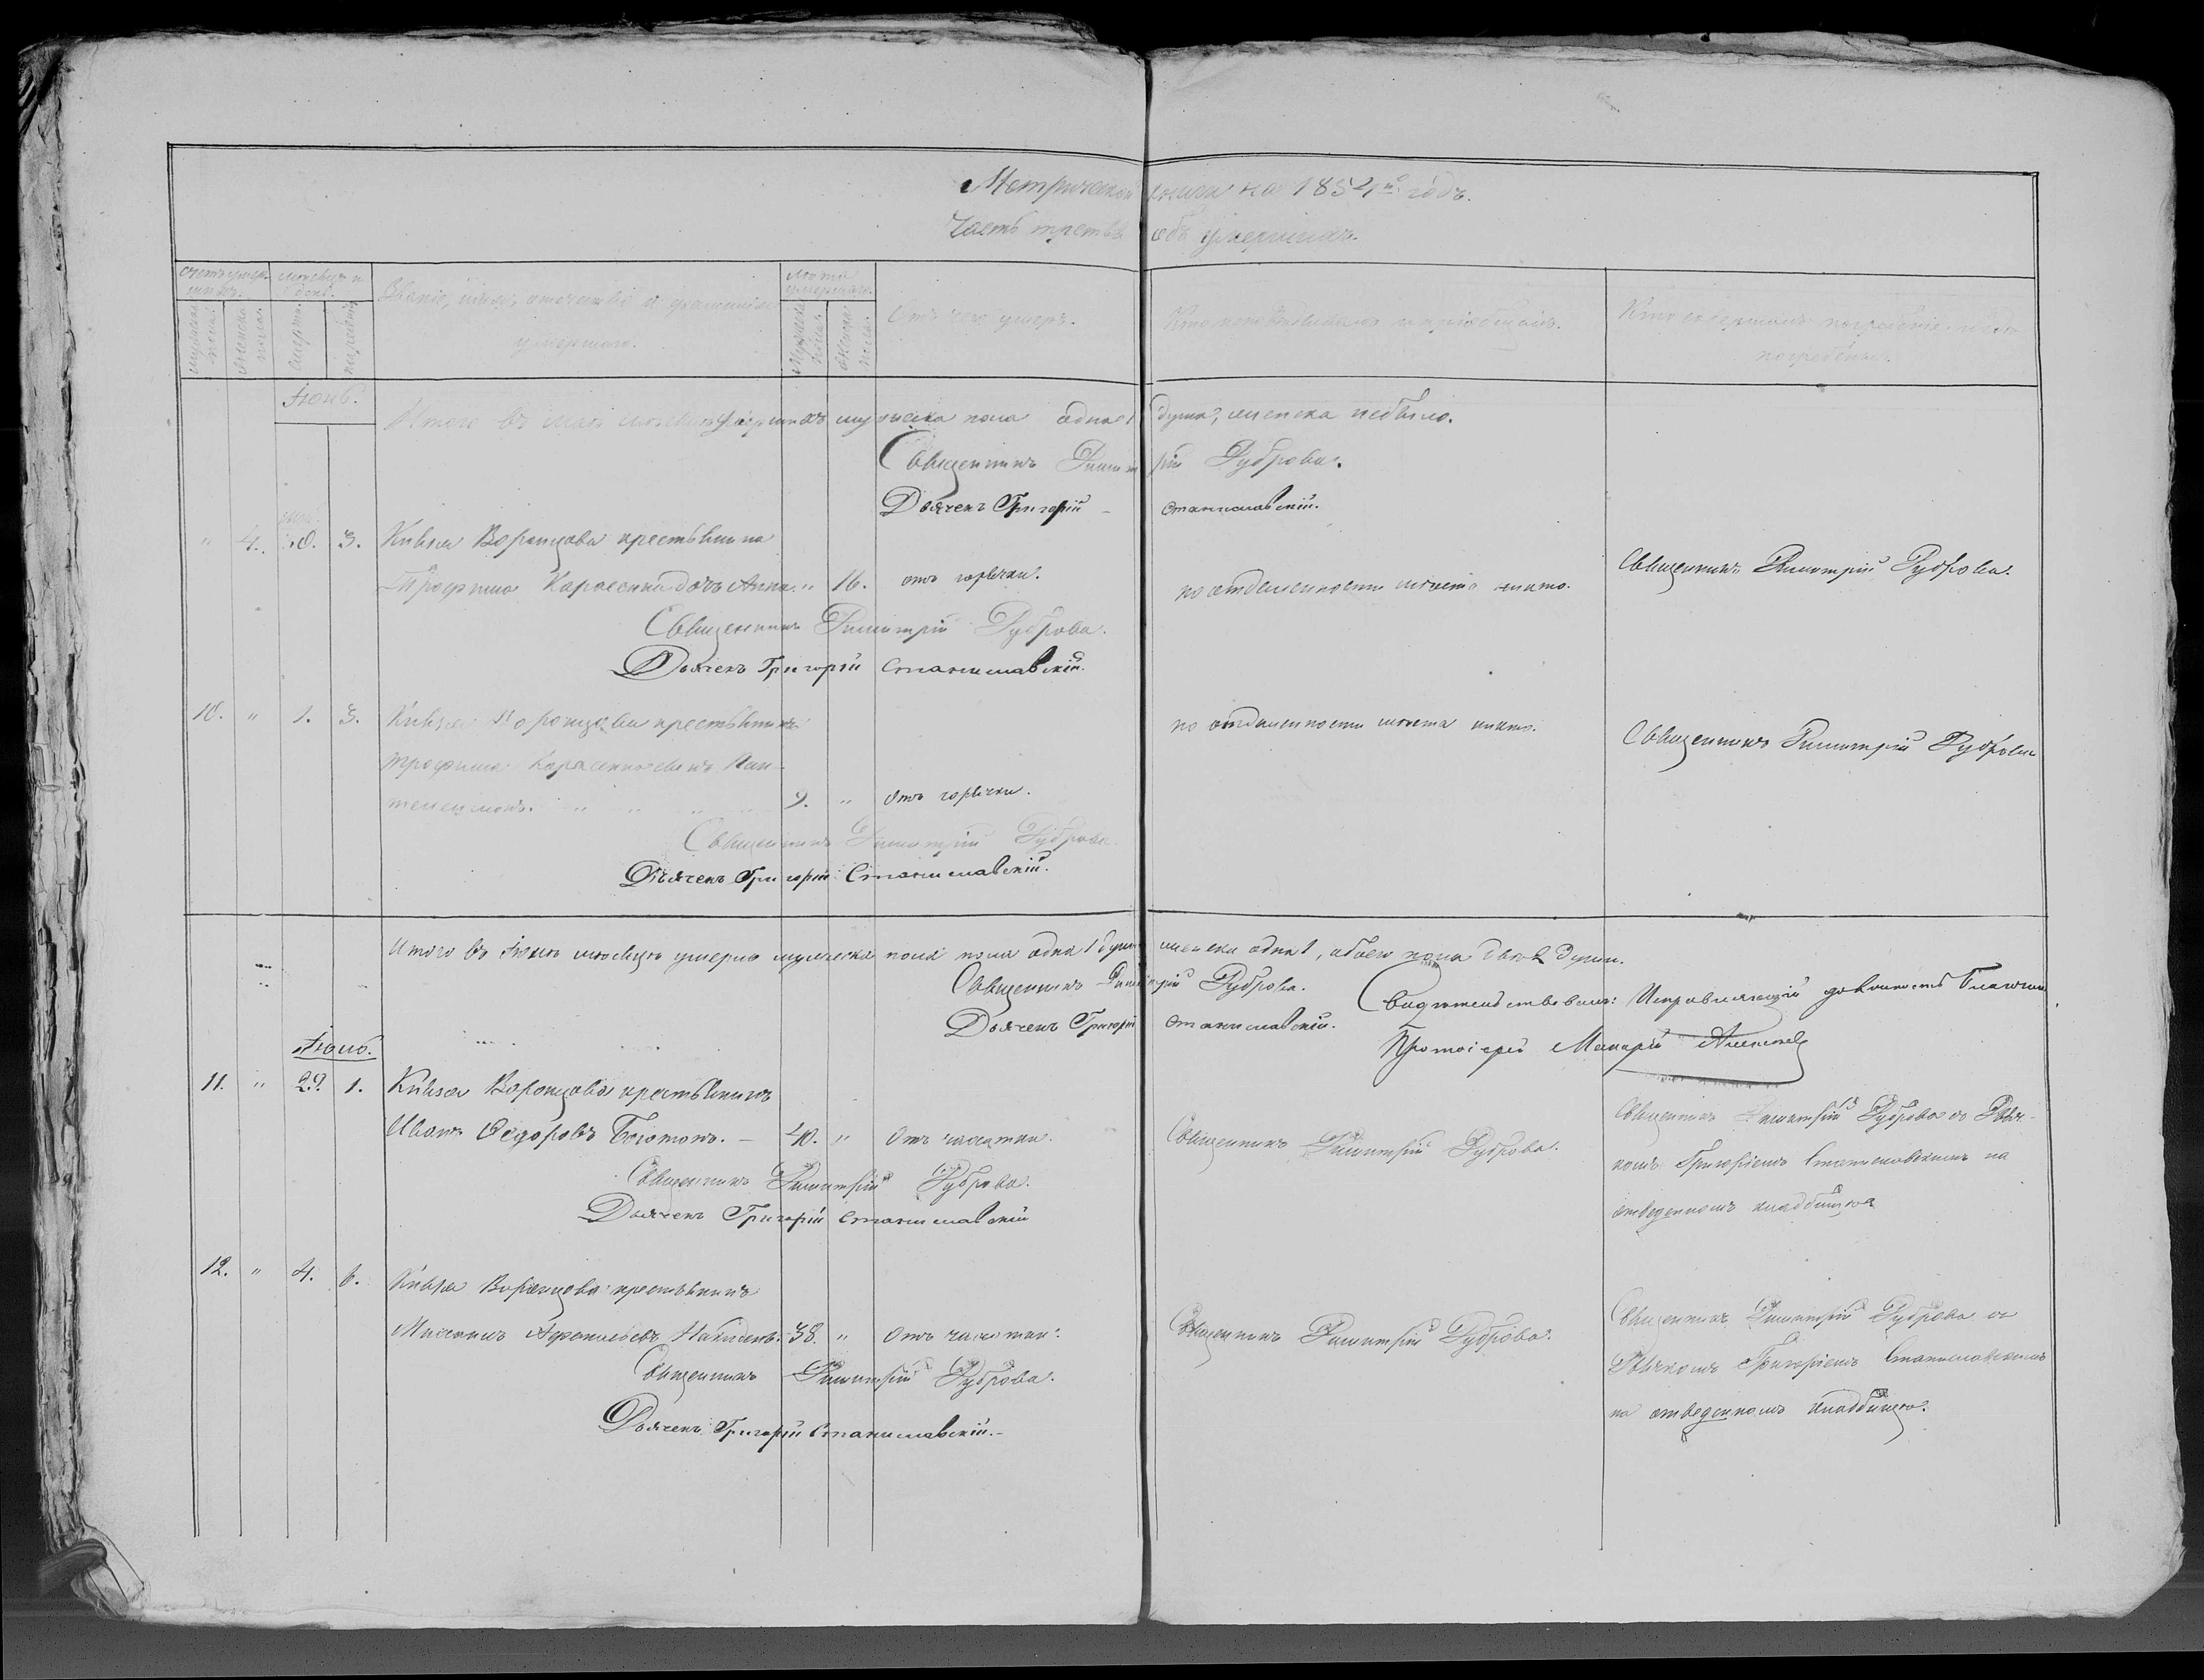 Метрической книги на 1854й годъ.
Часть третья объ умершихъ.
Счетъ умершихъ.
Мѣсяцъ и день.
Званіе, имя, отечество и фамилія умершаго.
Лѣта умершаго.
Отъ чего умеръ.
Кто исповѣдывалъ и пріобщалъ.
Кто совершалъ погребеніе и гдѣ погребены.
Мужеска пола.
Женска пола.
Смерти.
Погребенія.
Мужеска пола.
Женска пола.
Іюнь.
Итого въ маѣ мѣсяцѣ умершихъ мужеска пола одна 1 душа, женска небыло.
Священникъ Димитрій Дуброва.
Дьячекъ Григорій Станиславскій.
" 4. 30. 3. Князя Воронцова крестьянина
Трофима Карасенка дочь Анна. " 16. отъ горячки. по отдаленности мѣста никто. Священникъ Димитрій Дуброва.
Священникъ Димитрій Дуброва.
Дьячекъ Григорій Станиславскій.
10. " 1. 3. Князя Воронцова крестьянина по отдаленности мѣста никто. Священникъ Димитрій Дуброва
Трофима Карасенка сынъ Пан-
телеимонъ. 9. " Отъ горячки.
Священникъ Димитрій Дуброва.
Дьячекъ Григорій Станиславскій.
Итого въ Іюнѣ мѣсяцѣ умерло мужеска пола пола одна 1 душа женска одна 1, обоего пола двѣ 2 души.
Священникъ Димитрій Дуброва.
Дьячекъ Григорій Станиславскій.
Свидѣтельствовалъ: Исправляющій должность Благочин.
Протоіерей Макарій
Іюль.
11. " 29. 1. Князя Воронцова крестьянинъ
Иванъ Ѳедоровъ 40. " Отъ чахотки. Священникъ Димитрій Дуброва. Священникъ Димитрій Дуброва съ Дьяч-
комъ Григоріемъ Станиславскимъ на
отведенномъ кладбищѣ
Священникъ Димитрій Дуброва.
Дьячекъ Григорій Станиславскій
12. " 4. 6. Князя Воронцова крестьянинъ
38. " Отъ чахотки. Священникъ Димитрій Дуброва. Священникъ Димитрій Дуброва съ
Дьячкомъ Григоріемъ Станиславскимъ
на отведенномъ кладбищѣ.
Священникъ Димитрій Дуброва.
Дьячекъ Григорій Станиславскій.